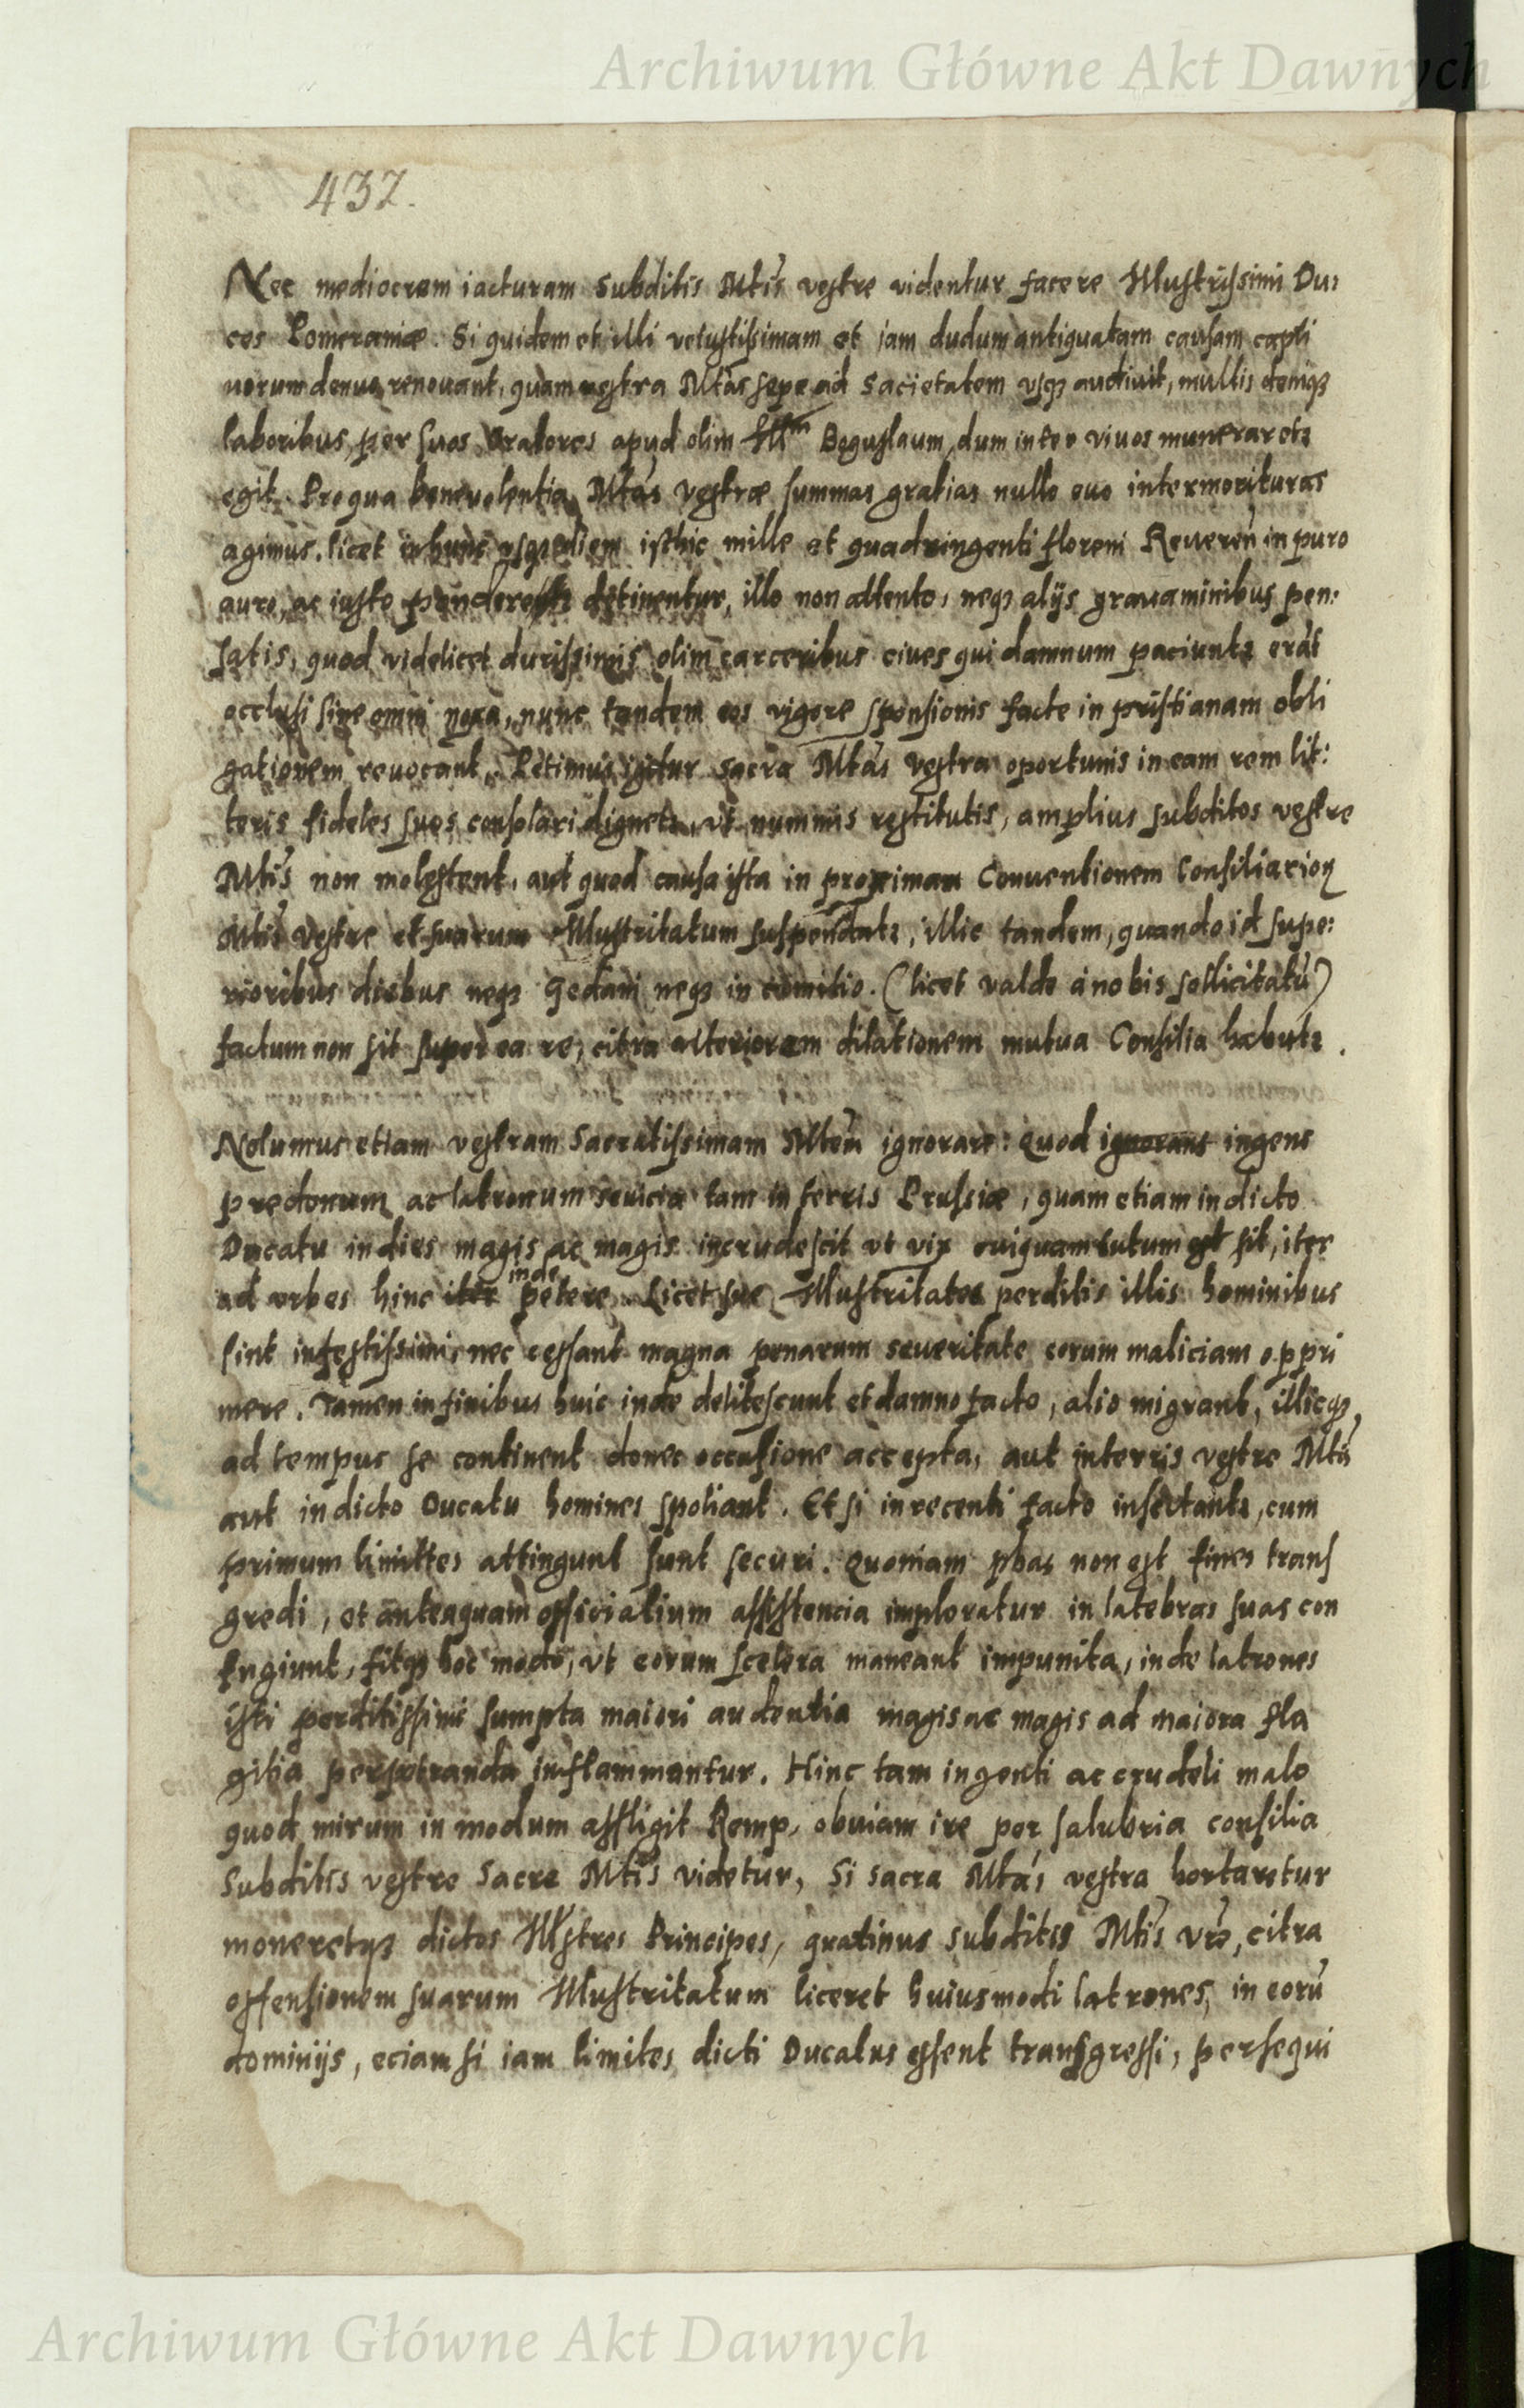 Archiwum Główne Akt Dawnych
437.
Nec mediocrem iacturam Subditis Mtis vestre videntur facere Illustrissimi Du:
ces Pomeraniæ. Si quidem et illi vetustissimam et iam dudum antiquatam causam capti
uorum denuo renouant, quam vestra Mtas sepe ad Sacietatem vsqz audiuit, multis deniqz
laboribus, per suos Oratores apud olim IllmBoguslaum, dum inter viuos munerarets
egit. Pro qua beneuolentia Mtas vestræ summas gratias nullo euo intermorituras
agimus. licet in hunc vsqz diem isthic mille et quadringenti floreni in puro
auro, ac iusto pondere detinentur, illo non attento, neqz alijs grauaminibus pen:
satis, quod videlicet durissimis olim carceribus ciues qui damnum paciunts erāt
occlusi sine omni noxa, nunc tandem eos vigore sponsionis facte in pristianam obli
gationem reuocant. Petimus igitur Sacra Mtas vestra oportunis in eam rem lit:
teris fideles suos consolari dignets, vt nummis restitutis, amplius subditos vestre
Mtis non molestent, aut quod causa ista in proximam Conuentionem Consiliarioꝝ
Mtis vestre et suarum Illustritatum suspendats, illic tandem, quando id supe:
rioribus diebus neqz Gedani neqz in comitio. (licet valde a nobis sollicitatū)
factum non sit super ea re, citra vlteriorem dilationem mutua Consilia habents.
Nolumus etiam vestram Sacratissimam Mtem ignorare: Quod ignorans ingens
predonum ac latronum seuicia tam in terris Prussiæ, quam etiam in dicto
Ducatu indies magis ac magis incrudescit vt vix cuiquam tutum est sit, iter
inde
ad vrbes hinc iter petere. Licet sue Illustritates perditis illis hominibus
sint infestissimi, nec cessant magna penarum seueritate eorum maliciam oppri
mere. Tamen in finibus huic inde delitescunt et damno facto, alio migrant, illicqz
ad tempus se continent donec occasione accepta, aut in terris vestre Mtis
aut in dicto Ducatu homines spoliant. Et si in recenti facto insectants, cum
primum limittes attingunt sunt securi. Quoniam non est fines trans
gredi, et anteaquam officialium assistencia imploratur in latebras suas con
fugiunt, fitqz hoc modo, vt eorum scelera maneant impunita, inde latrones
isti perditissimi sumpta maiori audentia magis ac magis ad maiora fla
gitia perpetranda inflammantur. Hinc tam ingenti ac crudeli malo
quod mirum in modum affligit Remp. obuiam ire per salubria consilia
Subditis vestre Sacre Mtis videtur, Si Sacra Mtas vestra hortaretur
moneretqz dictos Illstres Principes, quatinus subditis Mtis vrē, citra
offensionem suarum Illustritatum liceret huiusmodi latrones, in eorū
dominijs, eciam si iam limites dicti Ducatus essent transgressi, persequi
Archiwum Główne Akt Dawnych